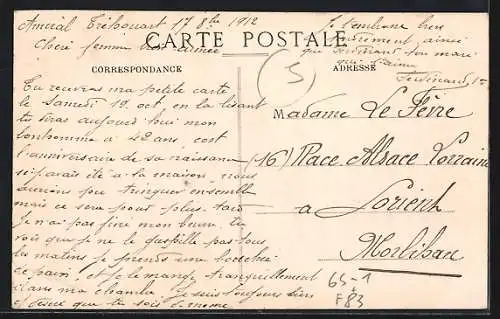 Amiral Tréhouart 17 8bre 1912
Chère femme bien aimée
CARTE POSTALE
CORRESPONDANCE
ADRESSE
Tu recevras ma petite carte
le samedi 19 oct, en la lisant
tu diras aujourd'hui mon
bonhomme a 42 ans, c'est
l'anniversaire de sa naissance
si j'avais été à la maison, nous
aurions pu trinquer ensemble
mais ce sera pour plus tard
Je n'ai pas fini mon beurre tu
vois que je ne le gaspille pas tous
les matins je prends une
de pain, et je le mange tranquillement
dans ma chambre Je suis toujours bien
et désire que tu sois de même
Je t'embrasse bien
ainsi
que ton mari
qui t'aime
Ferdinand
5
Madame Le Fèvre
(16) Place Alsace Lorraine
à Lorient
Morbihan
65-1
F83